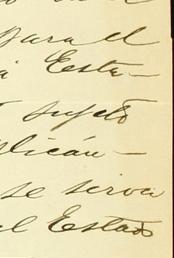 para el
Esta-
sujeto
plicán-
se sirva
el Estado